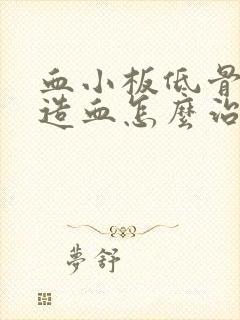 血小板低骨
造血怎麼治
夢舒